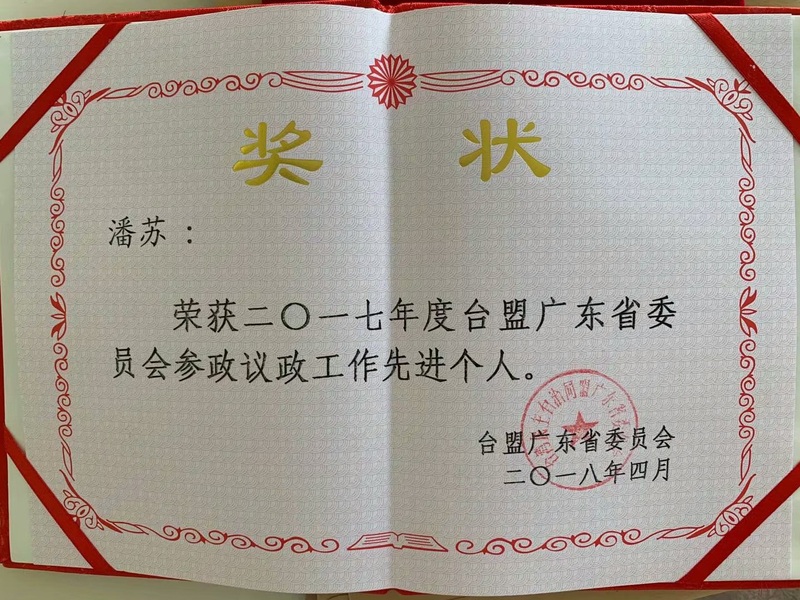 奖 状
潘苏：
荣获二〇一七年度台盟广东省委
员会参政议政工作先进个人。
台盟广东省委员会
二〇一八年四月